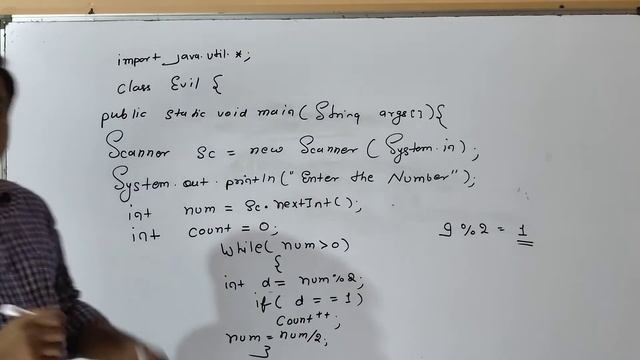 import java.util.*;
class Evil {
public static void main(String args[]){
Scanner sc = new Scanner (System.in);
System.out.println("Enter the Number");
int num = Sc.nextInt();
int count = 0;
while( num>0)
{
int d = num%2;
if( d == 1)
Count++;
num = num/2;
}
9 % 2 = 1